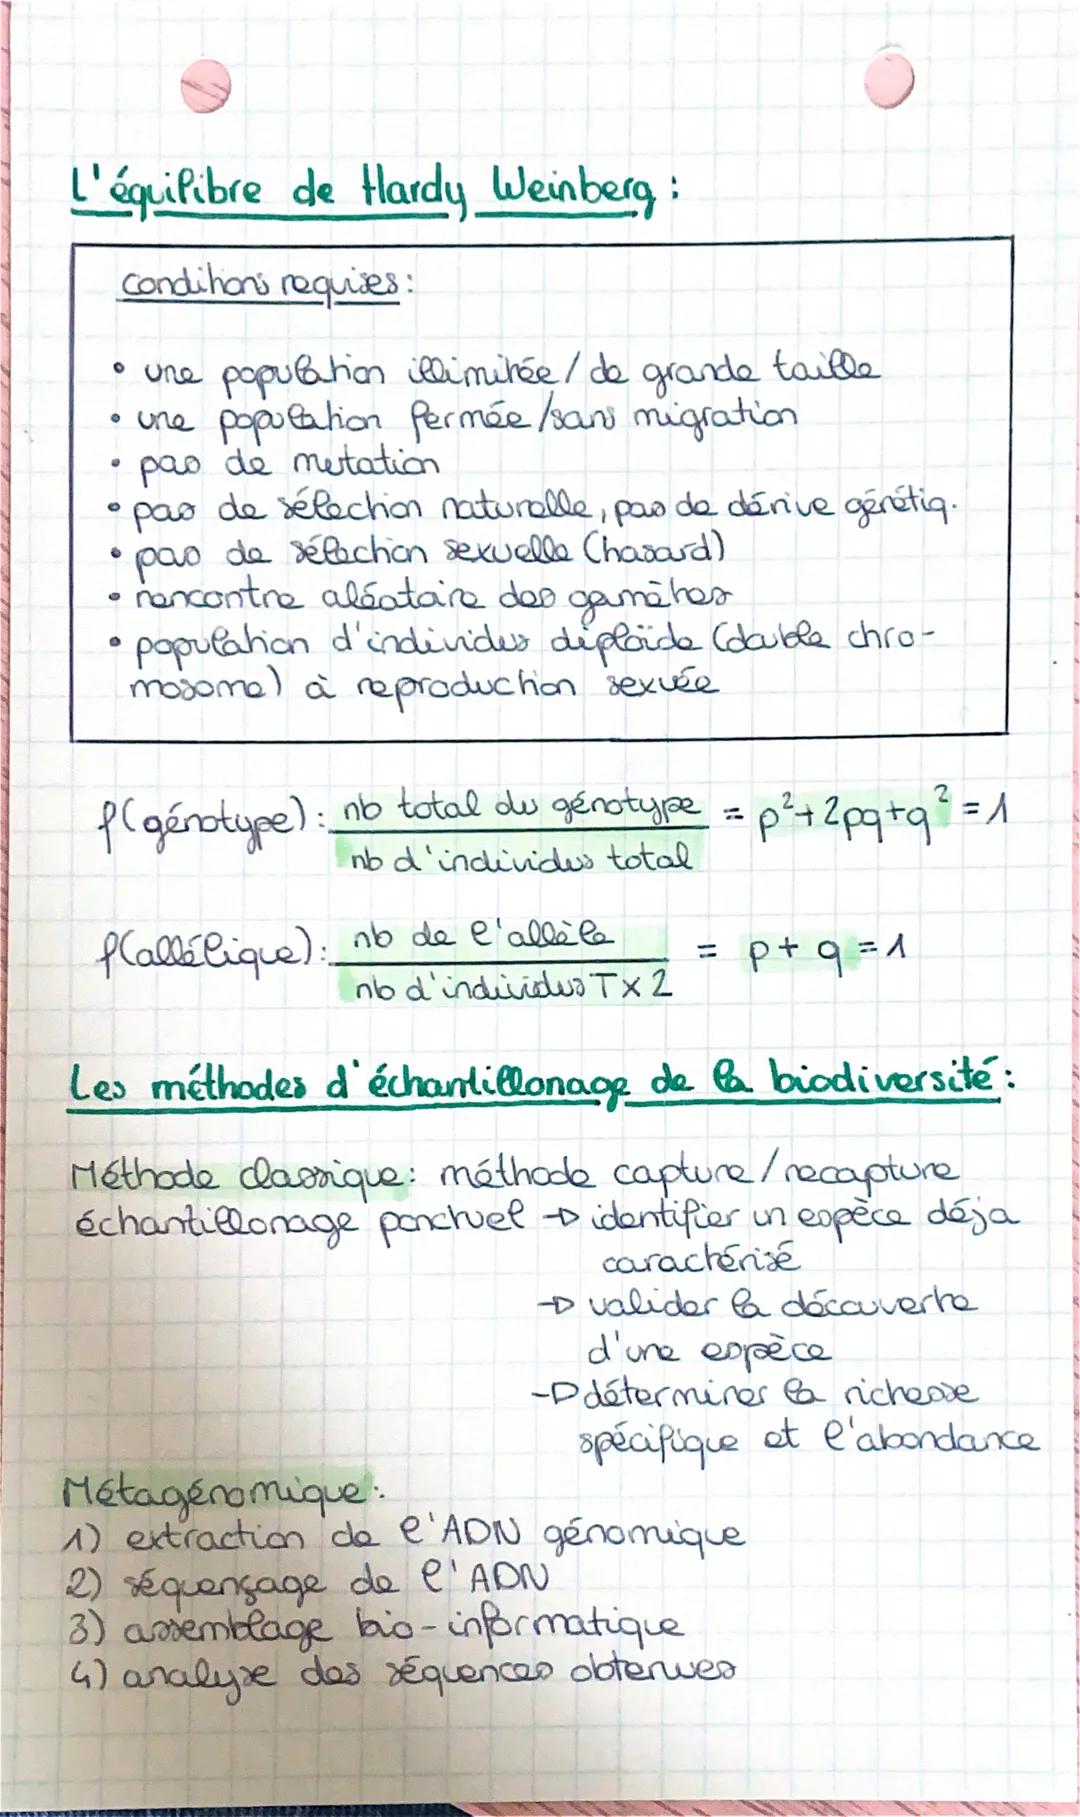 L'équilibre de Hardy Weinberg :
conditions requises :
• une population illimitée / de grande taille
• une population fermée / sans migration
• pas de mutation
• pas de sélection naturelle, pas de dérive génétiq.
• pas de sélection sexuelle (hasard)
• rencontre aléatoire des gamètes
• population d'individus diploïde (double chro-
mosome) à reproduction sexuée
f(génotype) : nb total du génotype = p²+2pq+q² = 1
nb d'individus total
f(allélique) : nb de l'allèle = p + q = 1
nb d'individus T x 2
Les méthodes d'échantillonage de la biodiversité :
Méthode classique : méthode capture / recapture
échantillonage ponctuel → identifier un espèce déja
caractérisé
→ valider la découverte
d'une espèce
→ déterminer la richesse
spécifique et l'abondance
Métagénomique :
1) extraction de l'ADN génomique
2) séquençage de l'ADN
3) assemblage bio-informatique
4) analyse des séquences obtenues